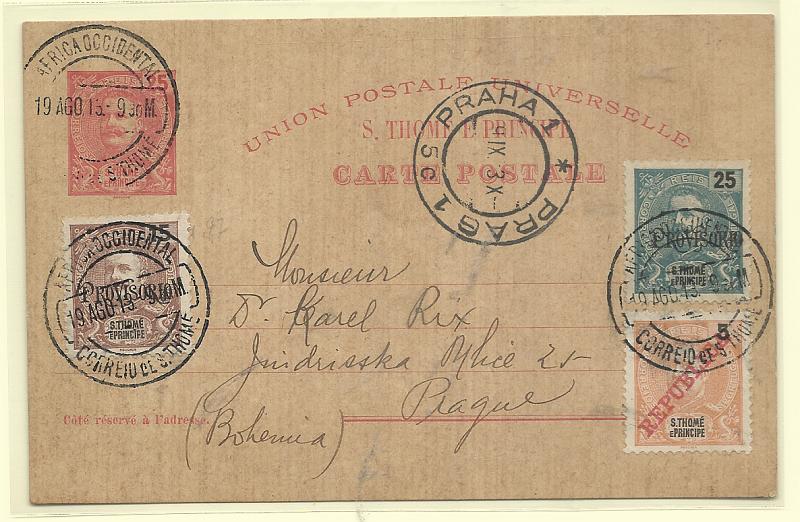 AFRICA OCCIDENTAL
19 AGO 13.- 9 30 M.
S. THOMÉ
UNION POSTALE UNIVERSELLE
S. THOMÉ E PRINCIPE
CARTE POSTALE
PRAHA 1 *
9 IX 3 X-
PRAG 1 5c
25
REIS
PROVISORIO
S. THOMÉ
E PRINCIPE
AFRICA OCCIDENTAL
19 AGO 13.- 9 M.
CORREIO DE S. THOMÉ
15
PROVISORIO
S. THOMÉ
E PRINCIPE
AFRICA OCCIDENTAL
19 AGO 13.- 9 30 M.
CORREIO DE S. THOMÉ
5
REPUBLICA
S. THOMÉ
E PRINCIPE
Monsieur
Dr. Karel Rix
Jindrisska Ulice 25
Prague
(Bohemia)
Côté réservé à l'adresse.